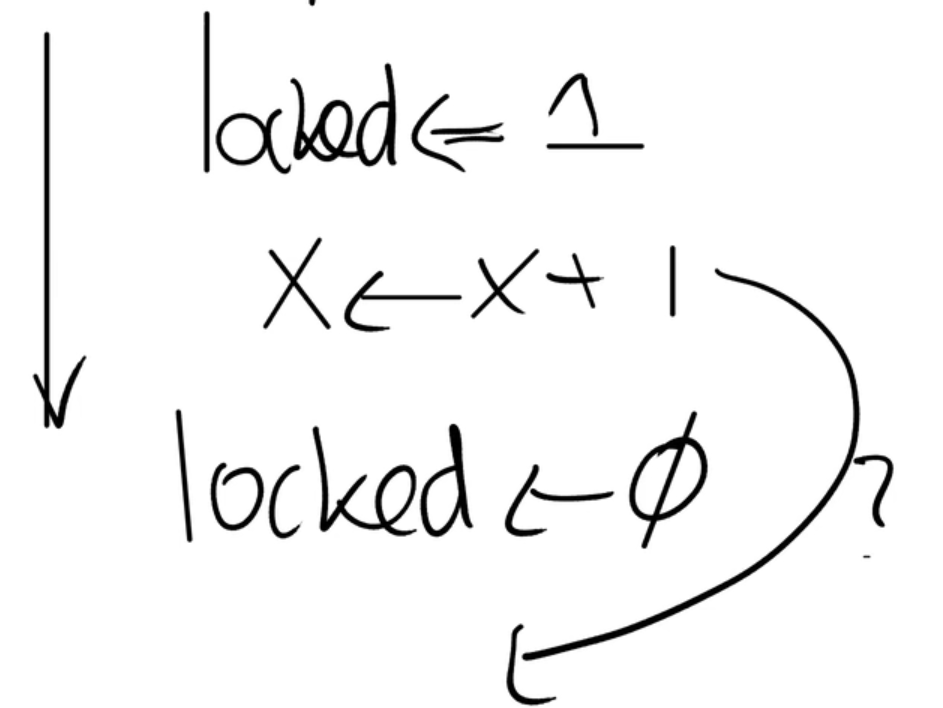 locked ⇐ 1
X ← X + 1
locked ← Ø
?